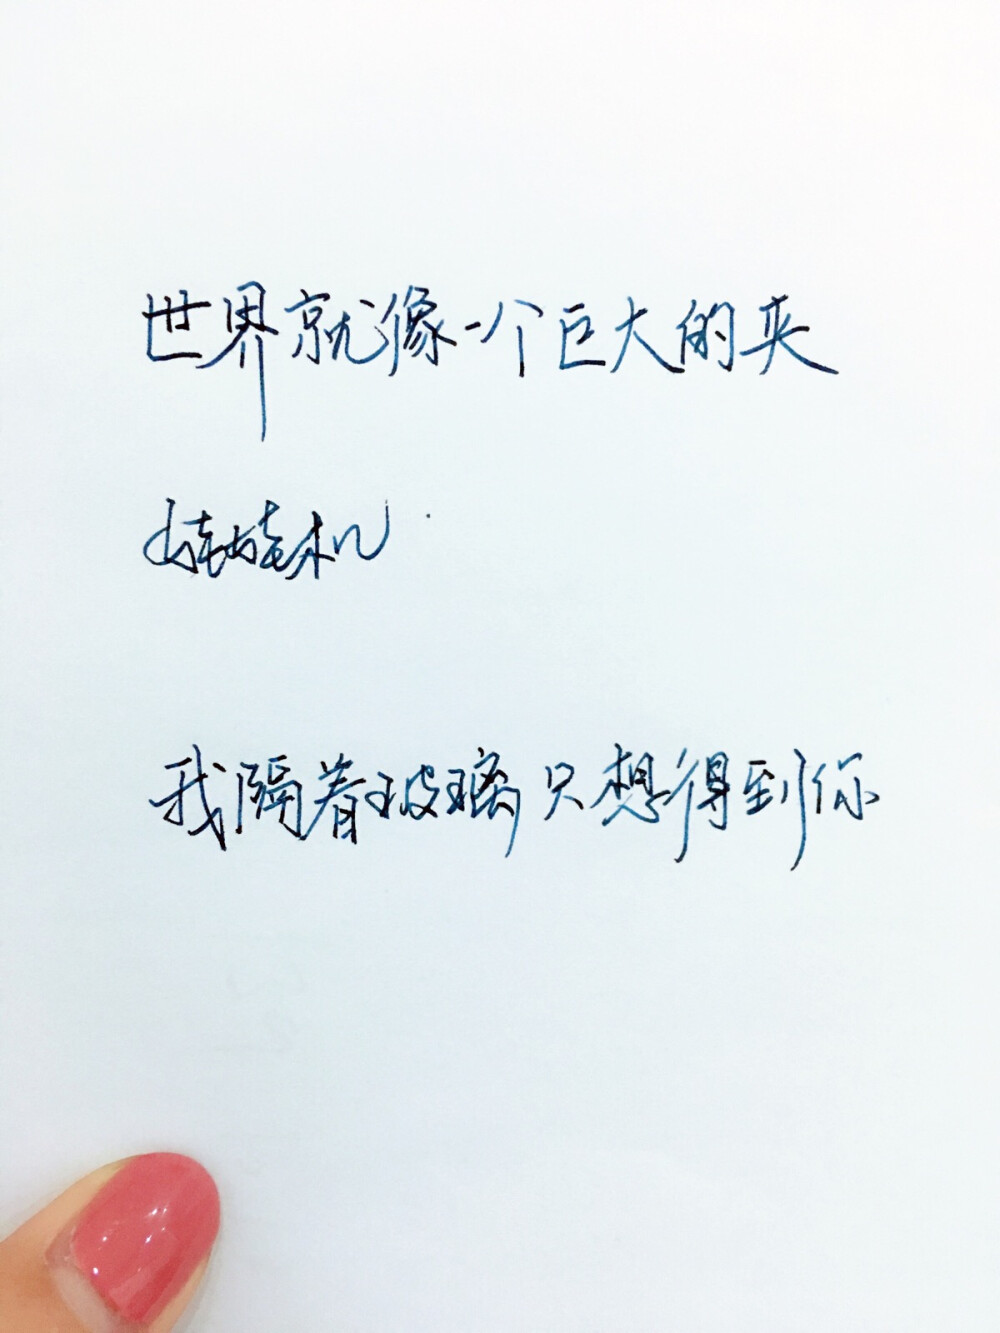 世界就像一个巨大的夹
娃娃机
我隔着玻璃只想得到你